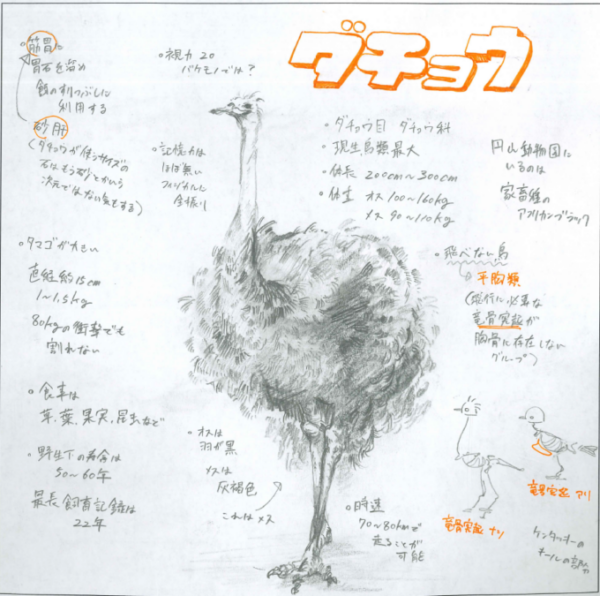 ダチョウ
・筋胃
胃石を溜め
餌のすりつぶしに
利用する
砂肝
(ダチョウが使うサイズの
石はもう砂とかいう
次元ではない気もする)
・視力 20
バケモノでは?
・記憶力は
ほぼ無い
フィジカルに
全振り
・ダチョウ目 ダチョウ科
・現生鳥類最大
・体長 200cm〜300cm
・体重 オス 100〜160kg
メス 90〜110kg
円山動物園に
いるのは
家畜種の
アフリカンブラック
・飛べない鳥
平胸類
(飛行に必要な
竜骨突起が
胸骨に存在しない
グループ)
・タマゴが大きい
直径約15cm
1〜1.5kg
80kgの衝撃でも
割れない
・食事は
草、葉、果実、昆虫など
・野生下の寿命は
50〜60年
最長飼育記録は
22年
・オスは
羽が黒
メスは
灰褐色
これはメス
・時速
70〜80kmで
走ることが
可能
竜骨突起 ナシ
竜骨突起 アリ
ケンタッキーの